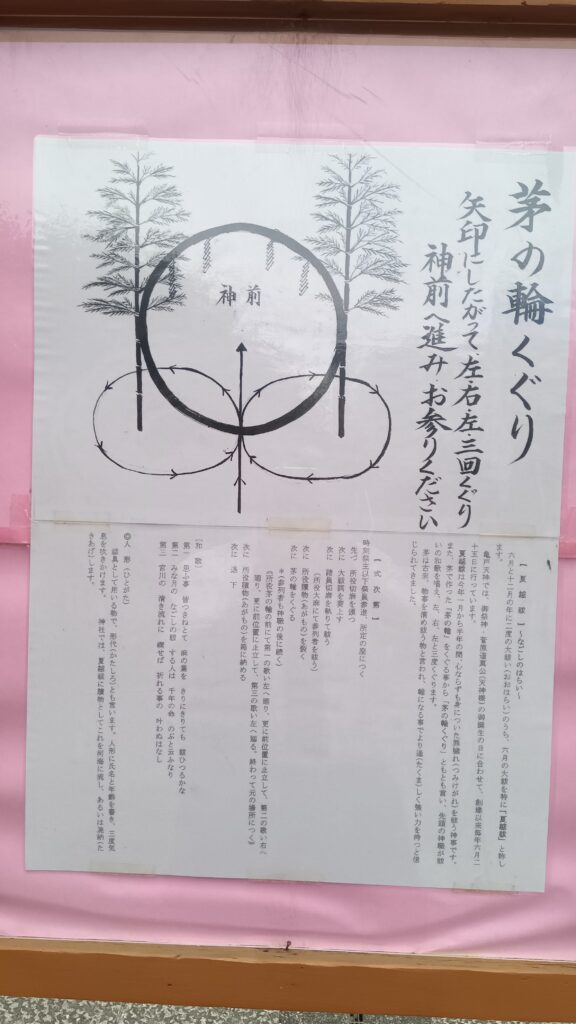 茅の輪くぐり
矢印にしたがって、左・右・左・三回くぐり
神前へ進み、お参りください
神前
【夏越祓】～なごしのはらい～
六月と十二月の年に二度の大祓い(おおはらい)のうち、六月の大祓を特に『夏越祓』と称し
ます。
亀戸天神では、御祭神・菅原道真公(天神様)の御誕生の日に合わせて、創建以来毎年六月二
十五日に行っています。
夏越祓は今年一月から半年の間、心ならずも身についた罪穢れ(つみけがれ)を祓う神事です。
また、茅で作った「茅の輪」をくぐる事から「茅の輪くぐり」ともとも言い、先頭の神職が祓
いの和歌を唱え、左、右、左と三度くぐります。
茅は古来、物事を清め祓う物と言われ、輪になる事でより逞(たくま)しく強い力を持つと信
じられてきました。
【式次第】
時刻祭主以下祭員参進、所定の座につく
先づ 所役切麻を頒つ
次に 大祓詞を奏上す
次に 諸員切麻を執りて祓う
(所役大麻にて参列者を祓う)
次に 所役贖物(あがもの)を裂く
次に 茅の輪をくぐる
＊(参列者も神職の後に続く)
(所役茅の輪の前にて第一の歌い左へ廻り、更に前位置に止立して、第二の歌い右へ
廻り、更に前位置に止立して、第三の歌い左へ廻る。終わって元の場所につく)
次に 所役贖物(あがもの)を箱に納める
次に 退下
【和歌】
第一 思ふ事 皆つきねとて 麻の葉を きりにきりても 祓ひつるかな
第二 みな月の なごしの祓 する人は 千年の命 のぶと云ふなり
第三 宮川の 清き流れに 禊せば 祈れる事の 叶わぬはなし
◎人形(ひとがた)
祓具として用いる物で、形代(かたしろ)とも言います。人形に氏名と年齢を書き、三度気
息を吹きかけます。 神社では、夏越祓に贖物としてこれを河海に流し、あるいは焼納(た
きあげ)します。